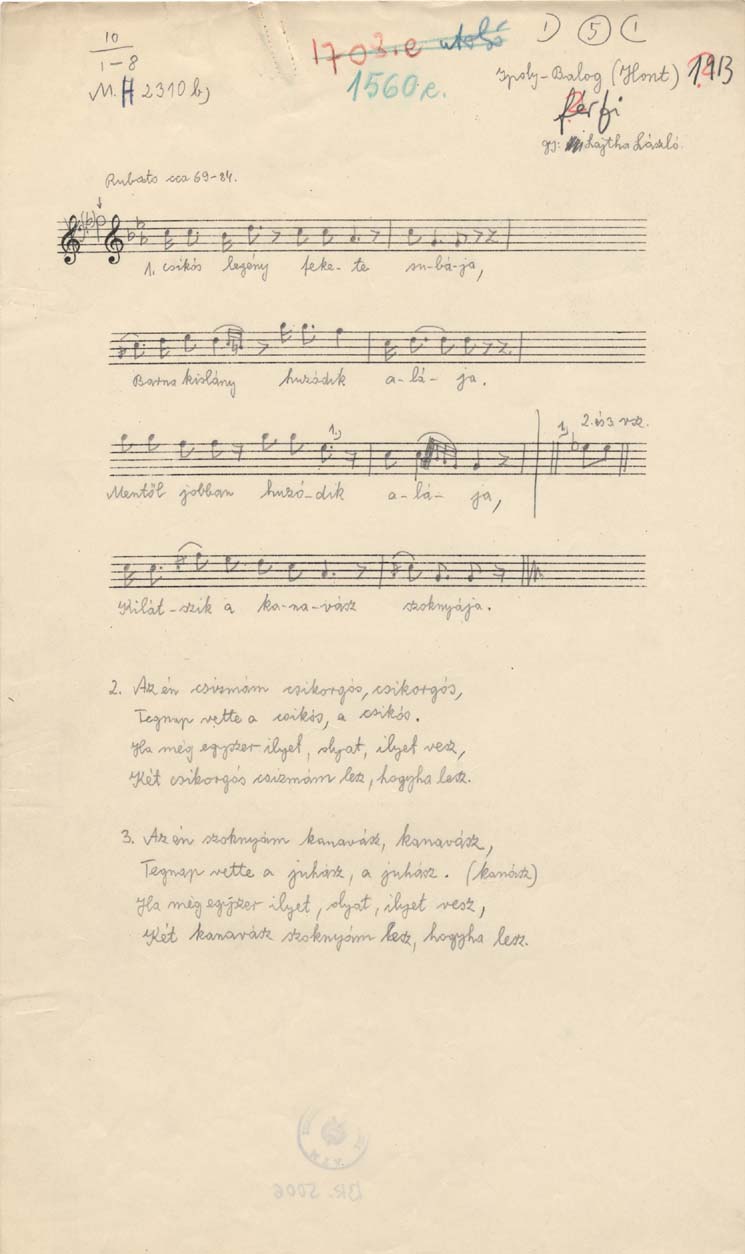 10
1-8
M.H 2310 b)
1703.e utolsó
1560e.
1) 5 (1
Ipoly-Balog (Hont) 1913
férfi
gy: Lajtha László.
Rubato cca 69-84.
1. csikós legény feke-te su-bá-ja,
Barna kislány huzódik a-lá-ja.
1) 2. és 3. vsz.
1)
Mentől jobban huzó-dik a-lá-ja,
Kilát-szik a ka-na-vász szoknyája.
2. Az én csizmám csikorgós, csikorgós,
Tegnap vette a csikós, a csikós.
Ha még egyszer ilyet, olyat, ilyet vesz,
Két csikorgós csizmám lesz, hogyha lesz.
3. Az én szoknyám kanavász, kanavász,
Tegnap vette a juhász, a juhász. (kanász)
Ha még egyszer ilyet, olyat, ilyet vesz,
Két kanavász szoknyám lesz, hogyha lesz.
BR. 5006